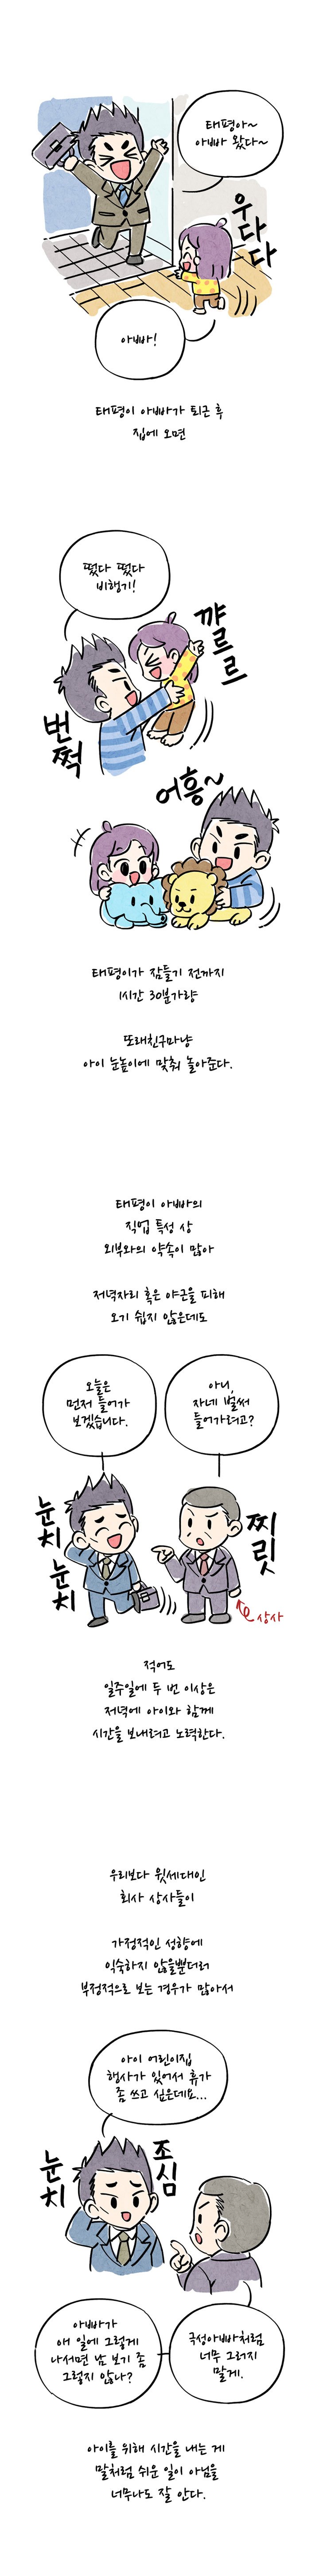 태평아~
아빠 왔다~
우다다
아빠!
태평이 아빠가 퇴근 후
집에 오면
떴다 떴다
비행기!
꺄르르
번쩍
어흥~
태평이가 잠들기 전까지
1시간 30분가량
또래친구마냥
아이 눈높이에 맞춰 놀아준다.
태평이 아빠의
직업 특성 상
외부와의 약속이 많아
저녁자리 혹은 야근을 피해
오기 쉽지 않은데도
오늘은
먼저 들어가
보겠습니다.
아니,
자네 벌써
들어가려고?
눈치
눈치
찌릿
상사
적어도
일주일에 두 번 이상은
저녁에 아이와 함께
시간을 보내려고 노력한다.
우리보다 윗세대인
회사 상사들이
가정적인 성향에
익숙하지 않을뿐더러
부정적으로 보는 경우가 많아서
아이 어린이집
행사가 있어서 휴가
좀 쓰고 싶은데요...
눈치
조심
아빠가
애 일에 그렇게
나서면 남 보기 좀
그렇지 않나?
극성아빠처럼
너무 그러지
말게.
아이를 위해 시간을 내는 게
말처럼 쉬운 일이 아님을
너무나도 잘 안다.